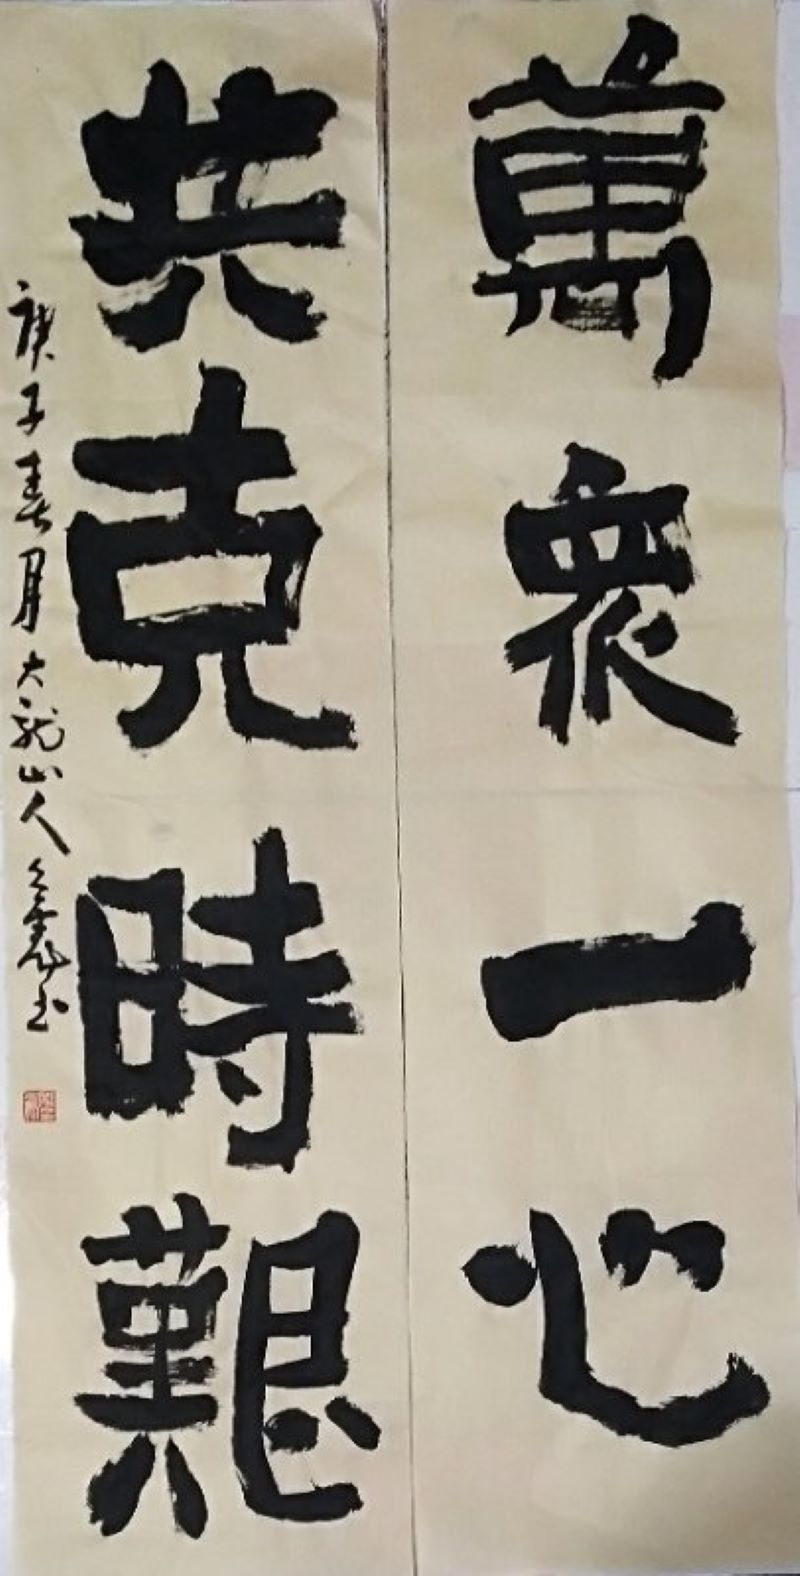 萬衆一心
共克時艱
庚子春月大龍山人書